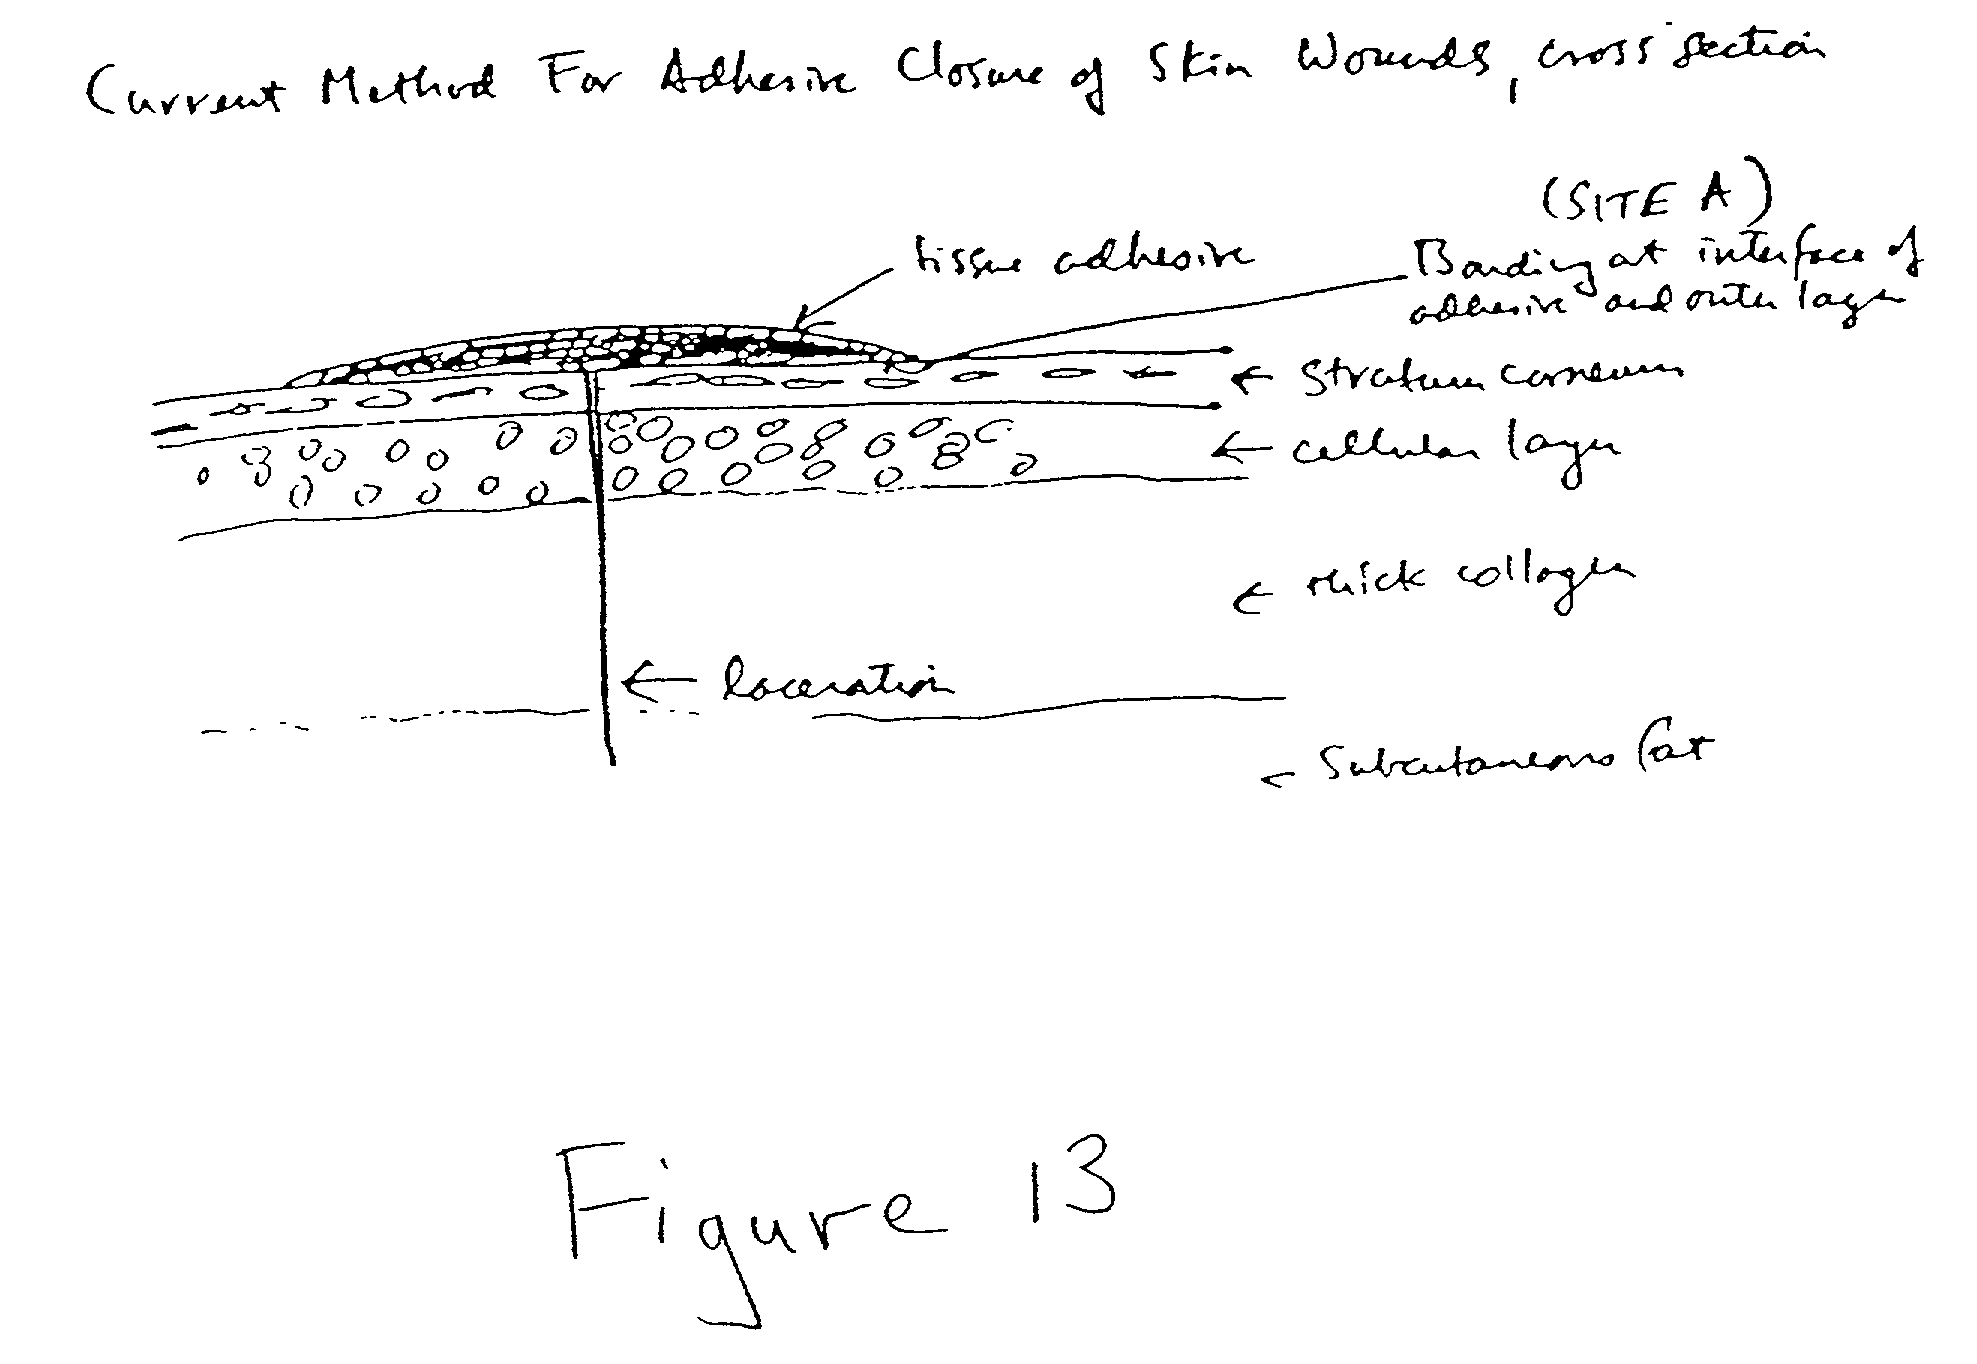 Current Method For Adhesive Closure of Skin Wounds, cross section
(SITE A)
tissue adhesive
Bonding at interface of
adhesive and outer layer
stratum corneum
cellular layer
thick collagen
laceration
Subcutaneous fat
Figure 13